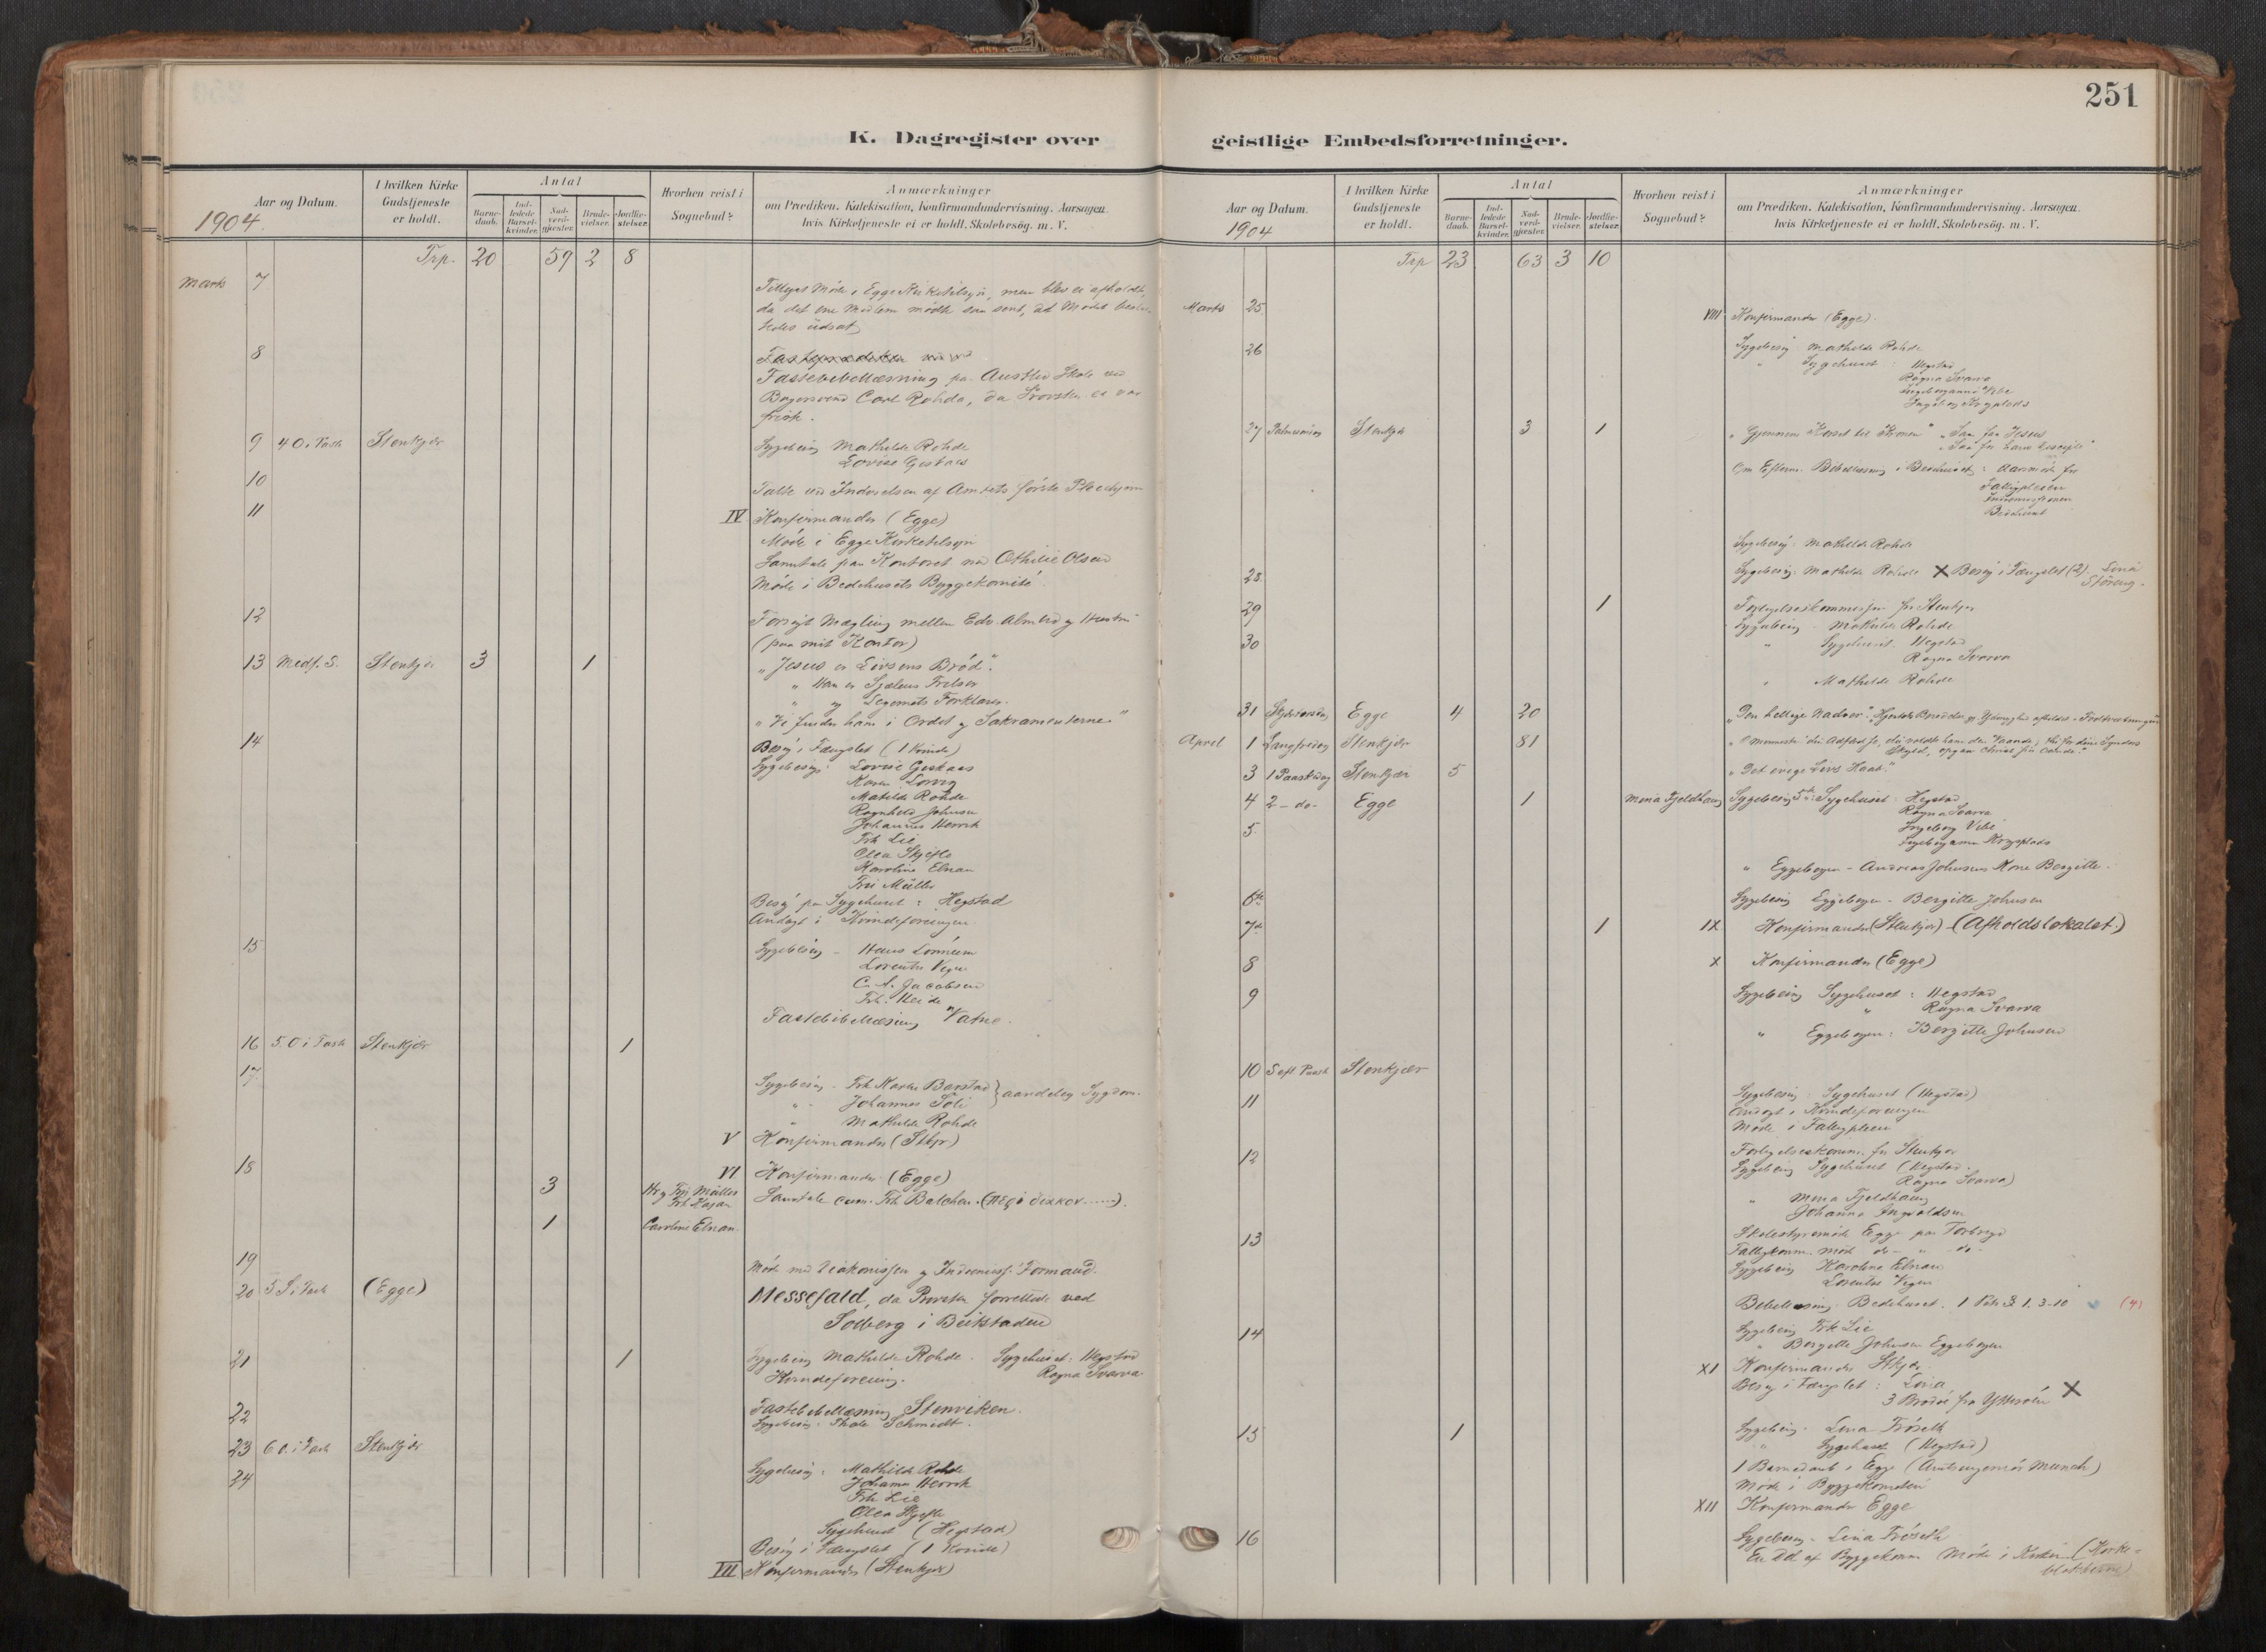 251
K. Dagregister over
geistlige Embedsforretninger.
Aar og Datum.
1904.
I hvilken Kirke
Gudstjeneste
er holdt.
Antal
Barne-
daab.
Ind-
ledede
Barsel-
kvinder.
Nad-
verd-
gjester.
Brude-
vielser.
Jordfæ-
stelser.
Hvorhen reist i
Sognebud?
Anmærkninger
om Prædiken. Katekisation, Konfirmandundervisning. Aarsagen,
hvis Kirketjeneste ei er holdt. Skolebesøg. m. V.
Trp. 20 59 2 8
Marts 7 Tillyst Møde i Egge Kirketilsyn, men blev ei afholdt,
da det ene Medlem mødte saa sent, at Mødet
udsat
8
Fastebibellæsning paa Skole ved
Bagersvend Carl Rohde, da Provsten ei var
frisk.
9 4 O. i Faste Stenkjær Sygebesøg Mathilde Rohde
Lovise Gustaas
10 Talte ved Indvielsen af Amtets første Pleiehjem
11 IV Konfirmander (Egge)
Møde i Egge Kirketilsyn
Samtale paa Kontoret med Othilie Olsen
Møde i Bedehusets Byggekomité
12 Forsøgt Mægling mellem Edv. Almlid og Hustru
(paa mit Kontor)
13 Midf. S. Stenkjær 3 1 „Jesus er Livsens Brød".
„ Han er Sjælens Frelser
„ og Legemets Forklarer.
„Vi finder ham i Ordet og Sakramenterne"
14 Besøg i Fængslet (1 Kvinde)
Sygebesøg: Lovise Gustaas
Karen
Matilde Rohde
Ragnhild Johnsen
Johannes Hervik
Frk Lie
Olea Skjefte
Karoline Elnan
Fru Müller
Besøg paa Sygehuset: Hegstad
Andagt i Kvindeforeningen
15 Sygebesøg - Hans
Lorentse Vegn
C. A. Jacobsen
Frk. Heide
Fastebibellæsning Vatne.
16 5. O. i Faste Stenkjær 1
17. Sygebesøg - Frk Karen Barstad } aandelig Sygdom.
„ - Johannes Soli
„ Mathilde Rohde
V Konfirmander (Stkjr)
18 VI Konfirmander (Egge)
3 Hr og Fru Müller
Frk Hagan
Samtale cum. Frk Balchen.
1 Caroline Elnan.
19 Møde med Diakonissen og Indremiss. Formand.
20 5 S. i Faste (Egge) Messefald, da Provsten forrettede ved
Solberg i Beitstaden
21 1 Sygebesøg Mathilde Rohde. Sygehuset: Hegstad
Ragna Svarva
Kvindeforening.
22 Fastebibellæsning Stenviken.
Sygebesøg: Schmidt.
23 6 O. i Faste Stenkjær
24 Sygebesøg: Mathilde Rohde
Johannes Hervik
Frk Lie
Olea Skjefte
Sygehuset (Hegstad)
Besøg i Fængslet (1 Kvinde)
VII Konfirmander (Stenkjær)
Aar og Datum.
1904
I hvilken Kirke
Gudstjeneste
er holdt.
Antal
Barne-
daab.
Ind-
ledede
Barsel-
kvinder.
Nad-
verd-
gjester.
Brude-
vielser.
Jordfæ-
stelser.
Hvorhen reist i
Sognebud?
Anmærkninger
om Prædiken. Katekisation, Konfirmandundervisning. Aarsagen,
hvis Kirketjeneste ei er holdt. Skolebesøg. m. V.
Trp 23 63 3 10
Marts 25. VIII Konfirmander (Egge).
26 Sygebesøg: Mathilde Rohde
„ Sygehuset: Hegstad
Ragna Svarva
Ingeborganna
Ingeborg
27 Palmesøndag Stenkjær 3 1 „Gjennem Korset til Kronen" „Saa for Jesus
„Saa for hans Disciple"
Om Efterm. Bibellæsning i Bedehuset: Aarsmøde for
Fattigpleien
Indremissionen
Bedehuset
Sygebesøg: Mathilde Rohde
28. Sygebesøg: Mathilde Rohde X Besøg i Fængslet (2). Lina
Støreng.
29 1 Forligelseskommissær for Stenkjær
Sygebesøg Mathilde Rohde
30 „ Sygehuset. Hegstad
Ragna Svarva
„ Mathilde Rohde
31 Skjærtorsdag Egge 4 20 „Den hellige Nadver".
April 1 Langfredag Stenkjær 81
3 1 Paaskedag Stenkjær 5 „Det evige Livs Haab."
4 2 - do - Egge 1 Mina Fjeldhaug Sygebesøg Sygehuset: Hegstad
Ragna Svarva
Ingeborg Vibe
Ingeborganna
5. „ Eggebogen - Andreas Johnsens Kone Bergitte.
6te Sygebesøg Eggebogen - Bergitte Johnsen
7de 1 IX Konfirmander (Stenkjær) (Afholdslokalet.)
8 X Konfirmander (Egge)
9 Sygebesøg Sygehuset: Hegstad
„ Ragna Svarva
„ Eggebogen: Bergitte Johnsen
10 S eft Paaske Stenkjær
11 Sygebesøg: Sygehuset (Hegstad)
Andagt i Kvindeforeningen
Møde i Fattigpleien
12 Forligelseskomm. for Stenkjær
Sygebesøg Sygehuset (Hegstad.
Ragna Svarva)
„ Mina Fjeldhaug
Johanna Ingvaldsen
13 Skolestyremøde Egge paa
Fattigkomm. møde do - „ - do -
Sygebesøg Karoline Elnan
Lorentse Vegn
Bibellæsning. Bedehuset. 1 Petr. 1. 3-10 (4)
14 Sygebesøg Frk Lie
„ Bergitte Johnsen Eggebogen
XI Konfirmander Stkjær.
Besøg i Fængslet: Lina
3 Brødre fra Ytterøen X
15 1 Sygebesøg. Lina Frøseth
„ Sygehuset (Hegstad)
1 Barnedaab i Egge (Amtsingeniør Munch)
Møde i Byggekomiteen
XII Konfirmander Egge
16 Sygebesøg. Lina Frøseth
En Del af Byggekomm Møde i Kirken (Kirke-
klokkerne)